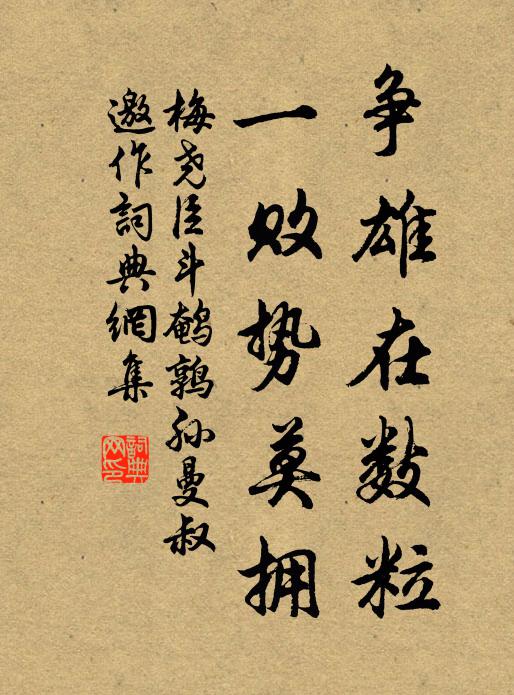 争雄在数粒
一败势莫拥
梅尧臣斗鹌鹑孙曼叔
邀作詞典網集
詞典网印